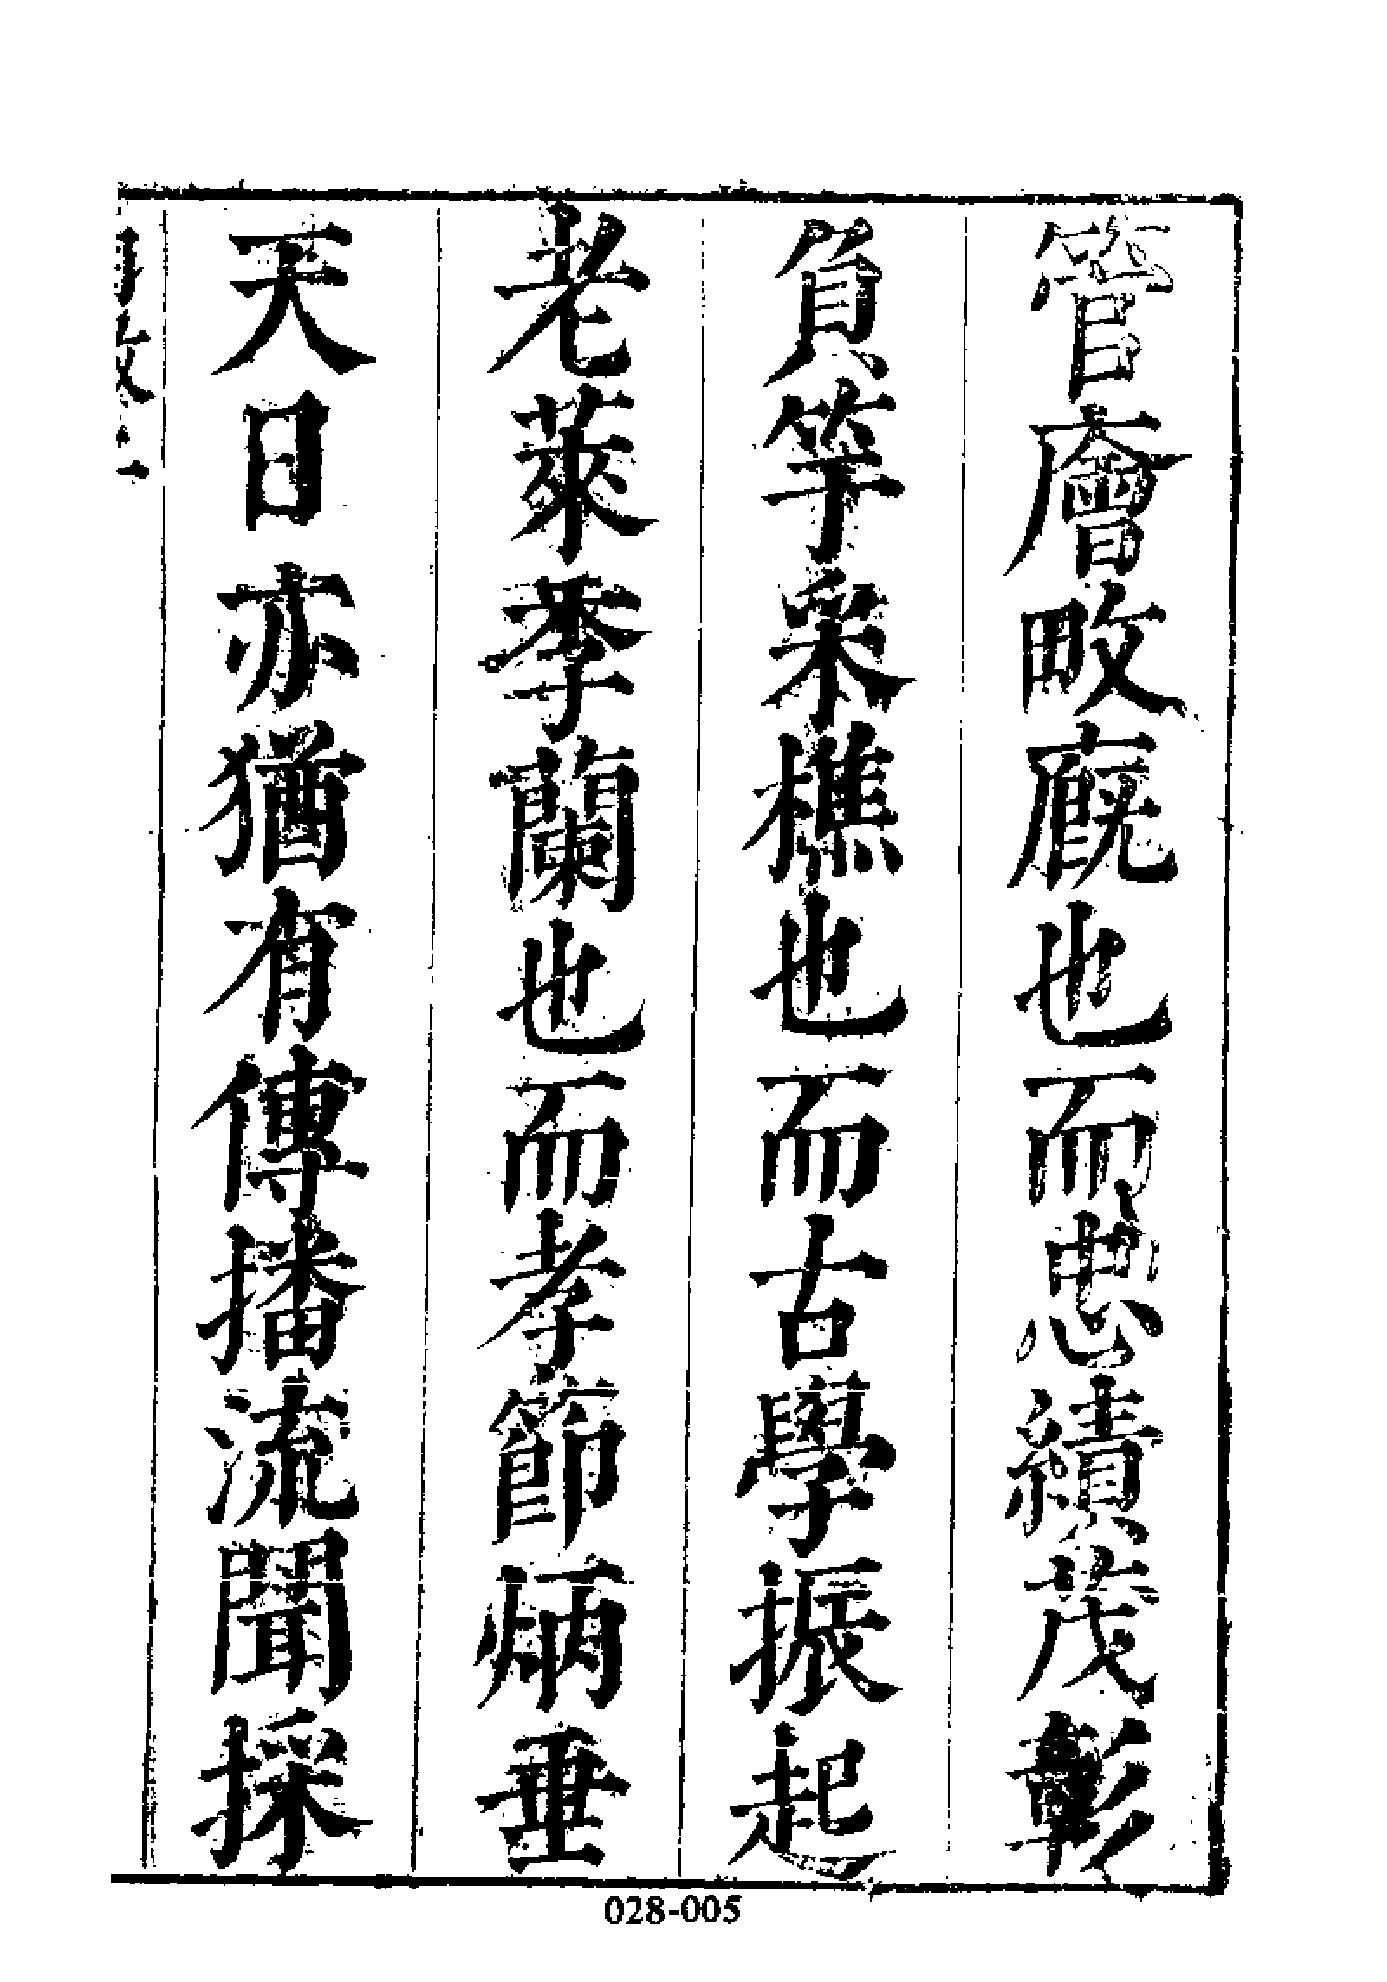 管廥畮廐也而忠績茂彰
負竿采樵也而古學振起
老萊季蘭也而孝節炳垂
天日亦猶有傳播流聞採
028-005